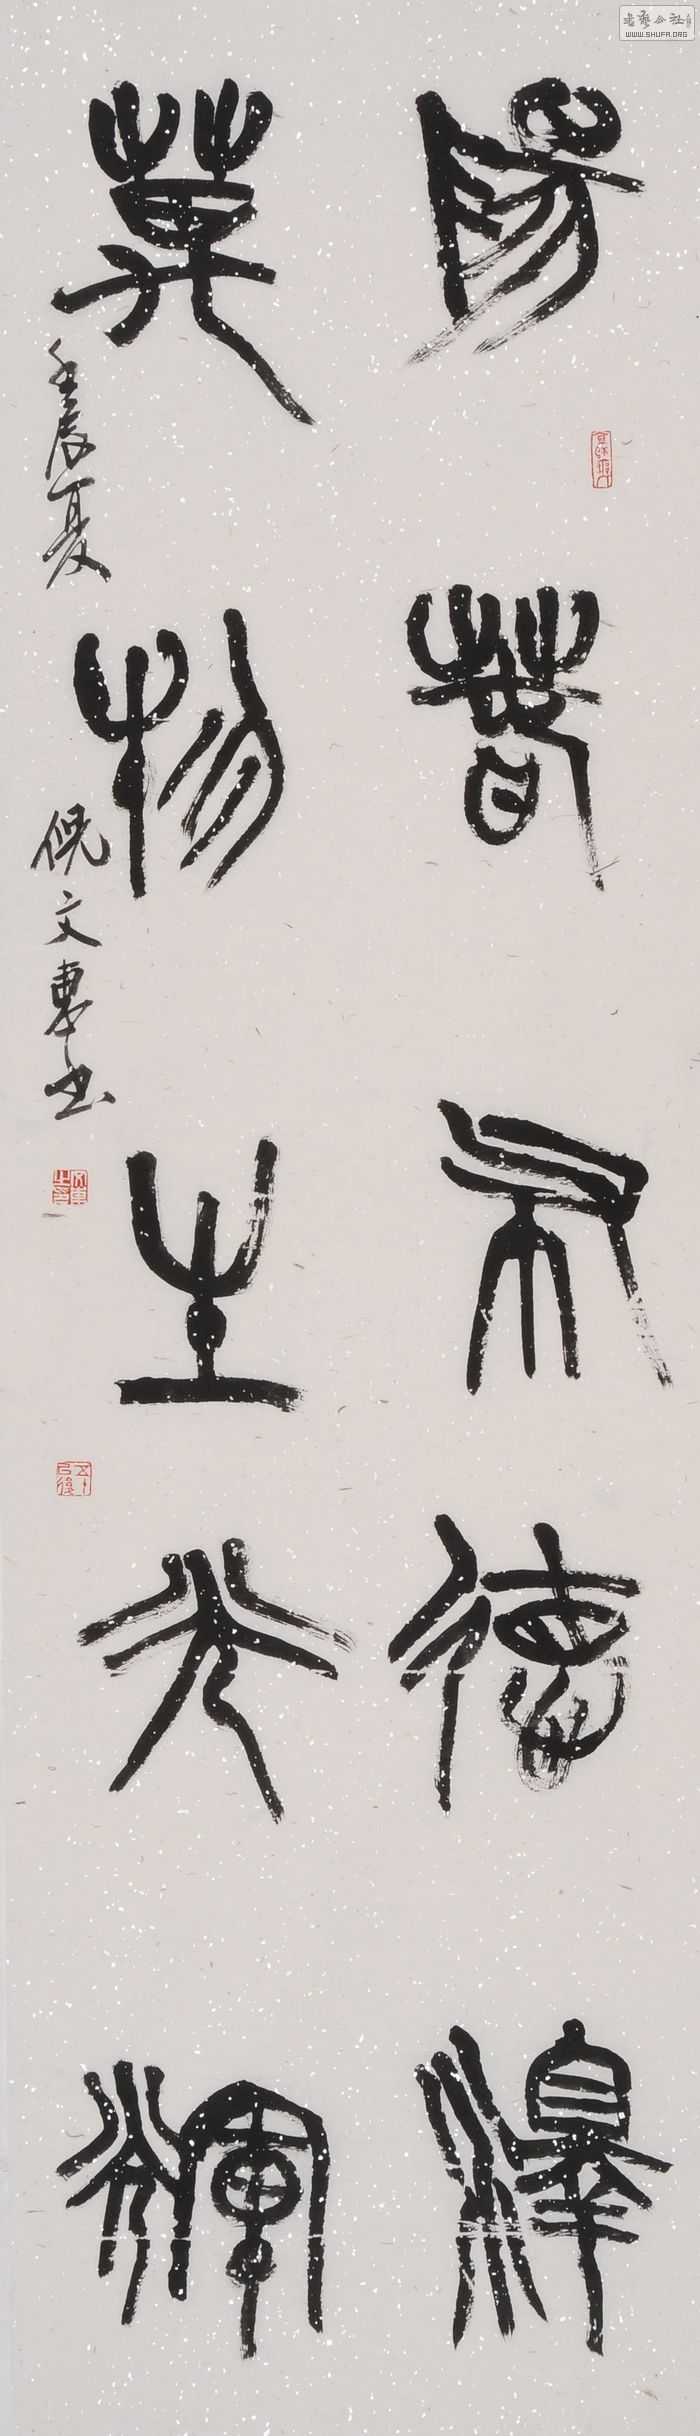 陽春布德澤
萬物生光輝
壬辰夏
倪文東書
書藝公社
WWW.SHUFA.ORG